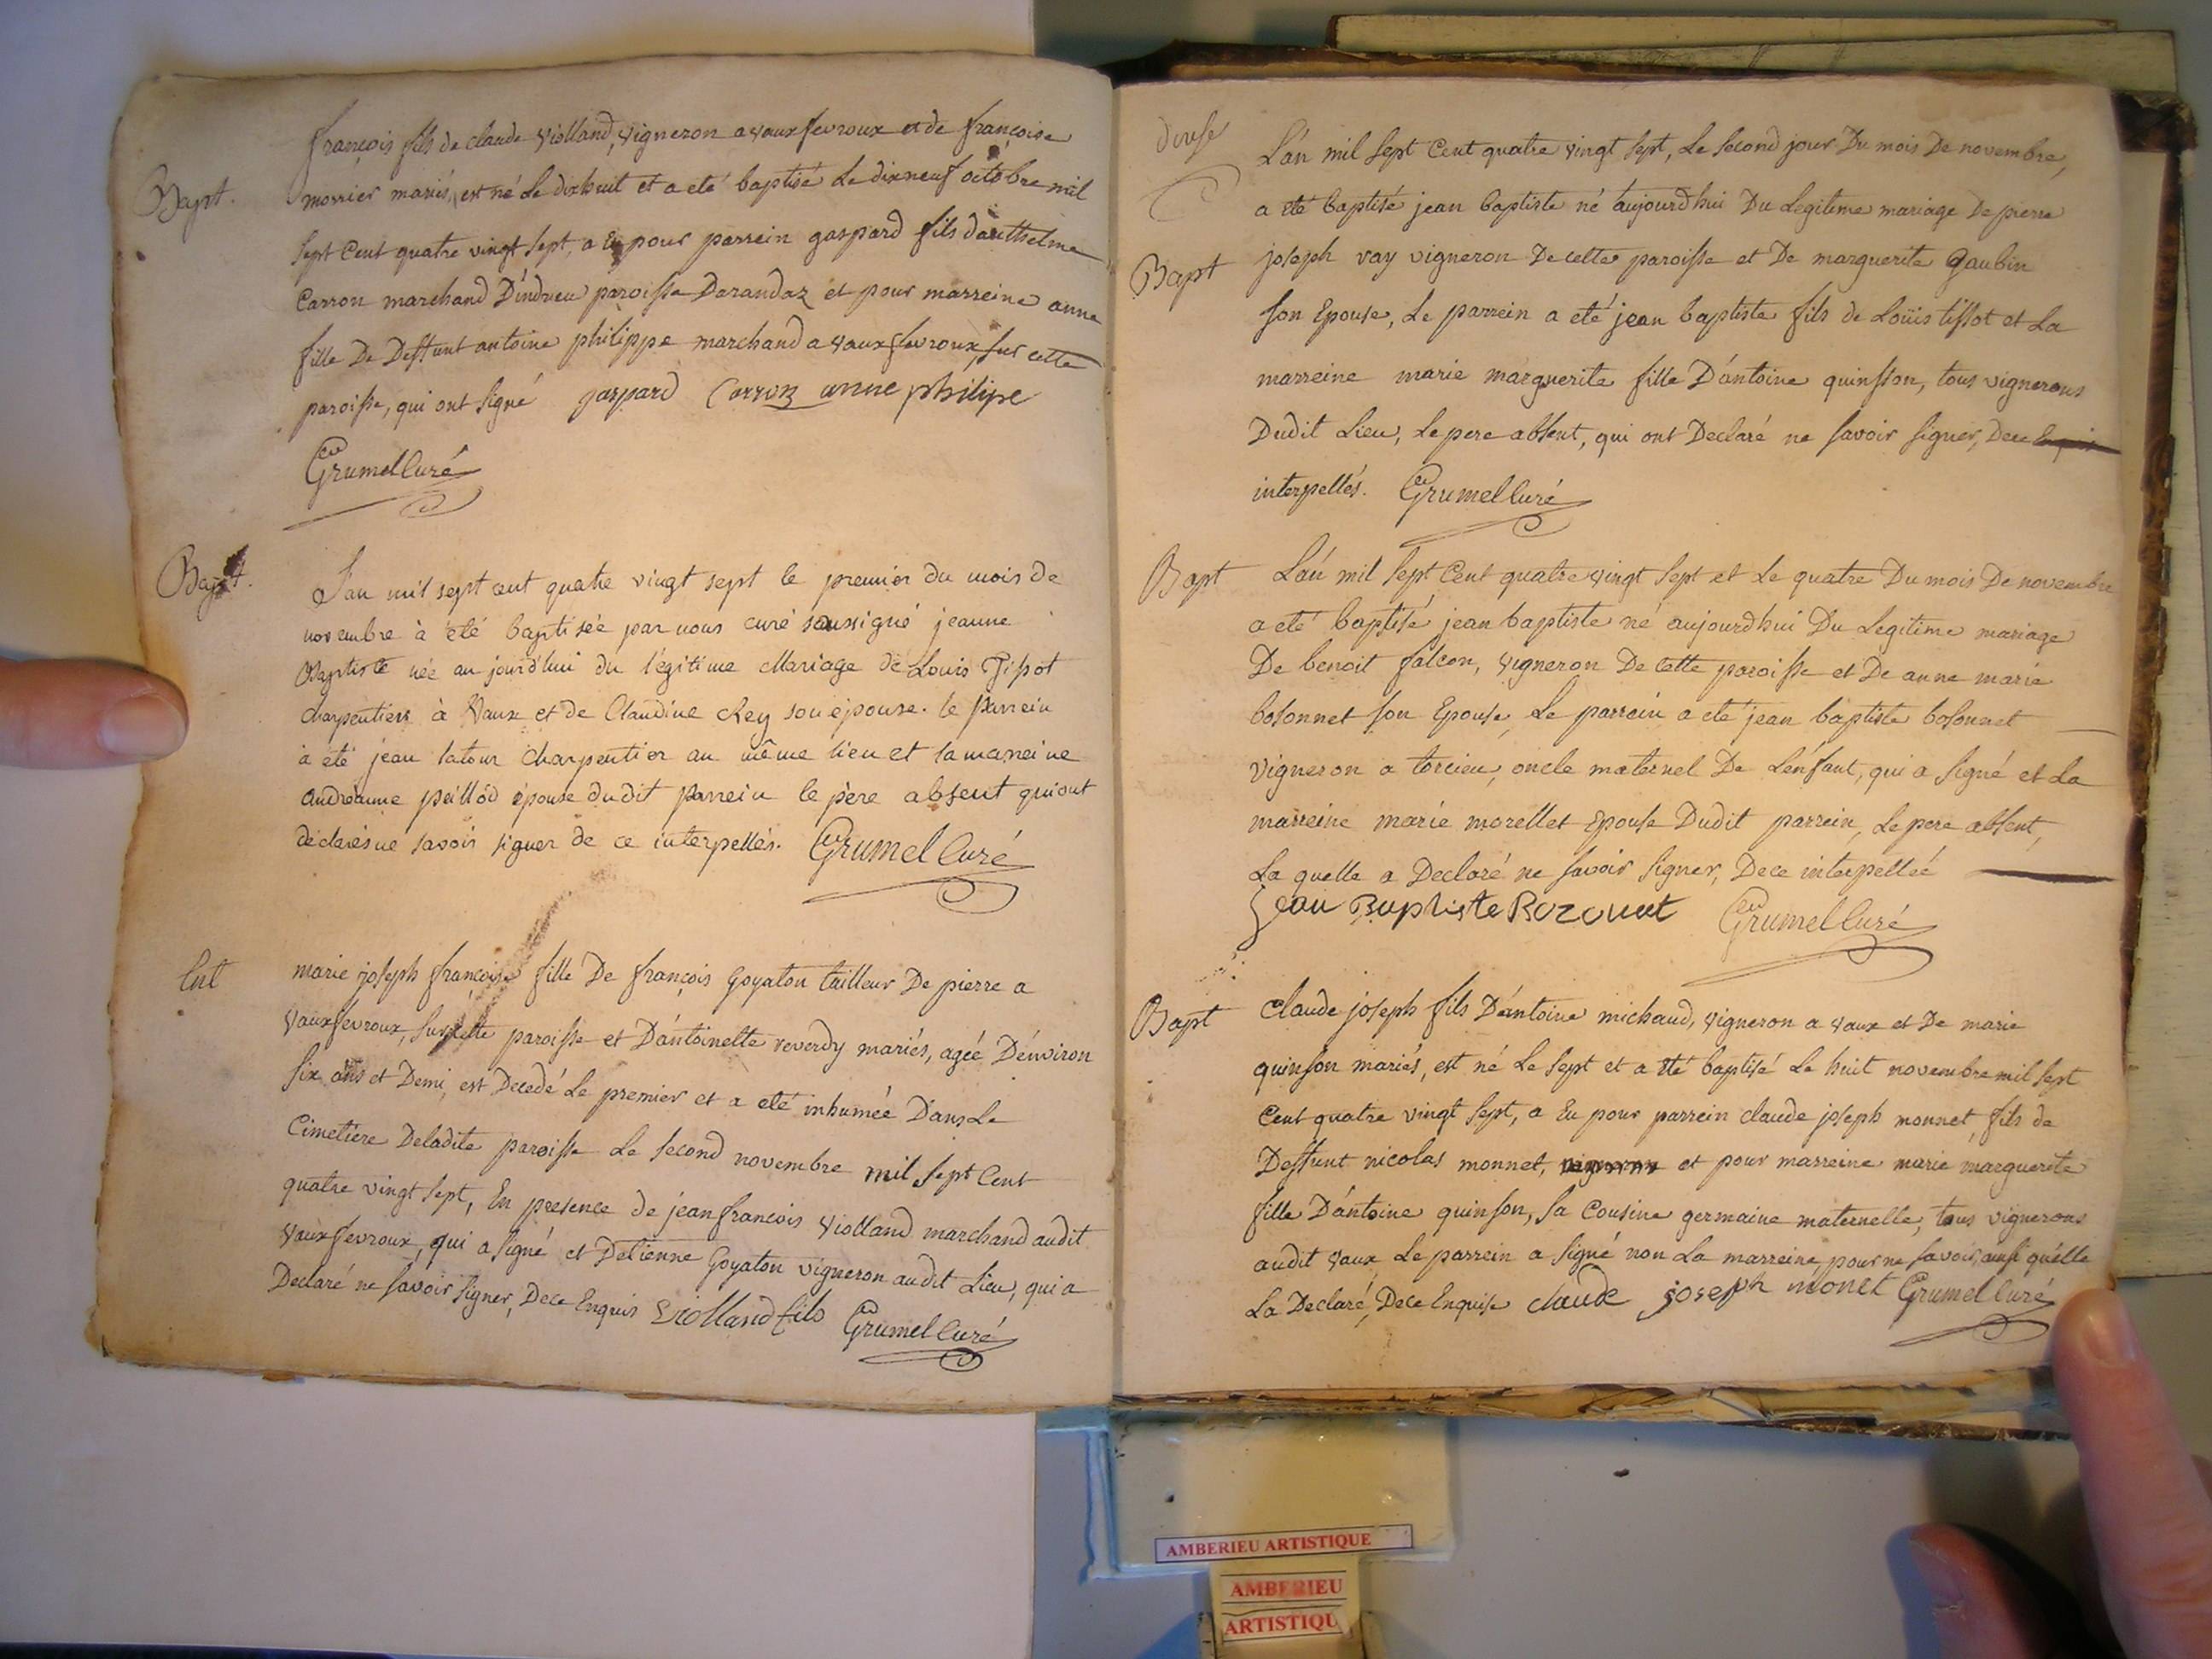 françois fils de claude violland, vigneron a vaux fevroux et de françoise
Bapt. morrier mariés, est né le dixhuit et a eté baptisé le dixneuf octobre mil
sept cent quatre vingt sept, a eu pour parrein gaspard fils danthelme
carron marchand D'indrieu paroisse Darandaz et pour marreine anne
fille De Deffunt antoine philippe marchand a vaux fevroux, sur cette
paroisse, qui ont signé gaspard Carron anne philipe
Grumel Curé
Bapt. L'an mil sept cent quatre vingt sept le premier du mois de
novembre à été baptisée par nous curé soussigné jeanne
Baptiste née au jourd'hui du légitime Mariage de Louis Tissot
charpentier à Vaux et de Claudine Rey son épouse. le parrein
à été jean latour Charpentier au même lieu et la marreine
andréanne peillod épouse dudit parrein le père absent qui ont
déclarés ne savoir signer de ce interpellés. Grumel Curé
Ent marie joseph françoise fille De françois Goyaton tailleur De pierre a
vaux fevroux, sur cette paroisse et D'antoinette reverdy mariés, ageé D'environ
six ans et Demi, est Decedé Le premier et a eté inhumée Dans Le
Cimetiere De ladite paroisse Le second novembre mil sept Cent
quatre vingt sept, En presence de jean francois violland marchand audit
vaux fevroux, qui a signé et D'etienne Goyaton vigneron audit Lieu, qui a
Declaré ne savoir signer, De ce Enquis Violland fils Grumel Curé
L'an mil sept Cent quatre vingt sept, Le second jour Du mois De novembre,
a eté baptisé jean baptiste né aujourdhui Du Legitime mariage De pierre
Bapt joseph vay vigneron De cette paroisse et De marguerite Gaubin
son Epouse, Le parrein a eté jean baptiste fils de Loüis tissot et La
marreine marie marguerite fille D'antoine quinsson, tous vignerons
Dudit Lieu, Le pere absent, qui ont Declaré ne savoir signer, De ce
interpellés. Grumel Curé
Bapt L'an mil sept Cent quatre vingt sept et Le quatre Du mois De novembre
a eté baptisé jean baptiste né aujourdhui Du Legitime mariage
De benoit falcon, vigneron De cette paroisse et De anne marie
bosonnet son Epouse, Le parrein a eté jean baptiste bosonnet
vigneron a torcieu, oncle maternel De L'enfant, qui a signé et La
marreine marie morellet Epouse Dudit parrein, Le pere absent,
La quelle a Declaré ne savoir signer, De ce interpelleé
Jean Baptiste Bozonnet Grumel Curé
Bapt Claude joseph fils D'antoine michaud, vigneron a vaux et De marie
quinson mariés, est né Le sept et a eté baptisé Le huit novembre mil sept
Cent quatre vingt sept, a Eu pour parrein claude joseph monnet, fils de
Deffunt nicolas monnet, et pour marreine marie marguerite
fille D'antoine quinson, sa Cousine germaine maternelle, tous vignerons
audit vaux, Le parrein a signé non La marreine, pour ne savoir, ainsi qu'elle
La Declaré, De ce Enquise claude joseph monet Grumel Curé
AMBERIEU ARTISTIQUE
AMBERIEU
ARTISTIQU